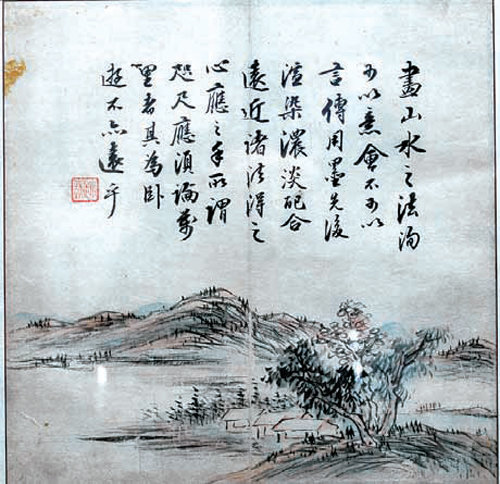 畫山水之法洵
可以意會不可以
言傳用墨先後
渲染濃淡配合
遠近諸法得之
心應之手所謂
咫尺應須論萬
里者其為臥
遊不亦遠乎